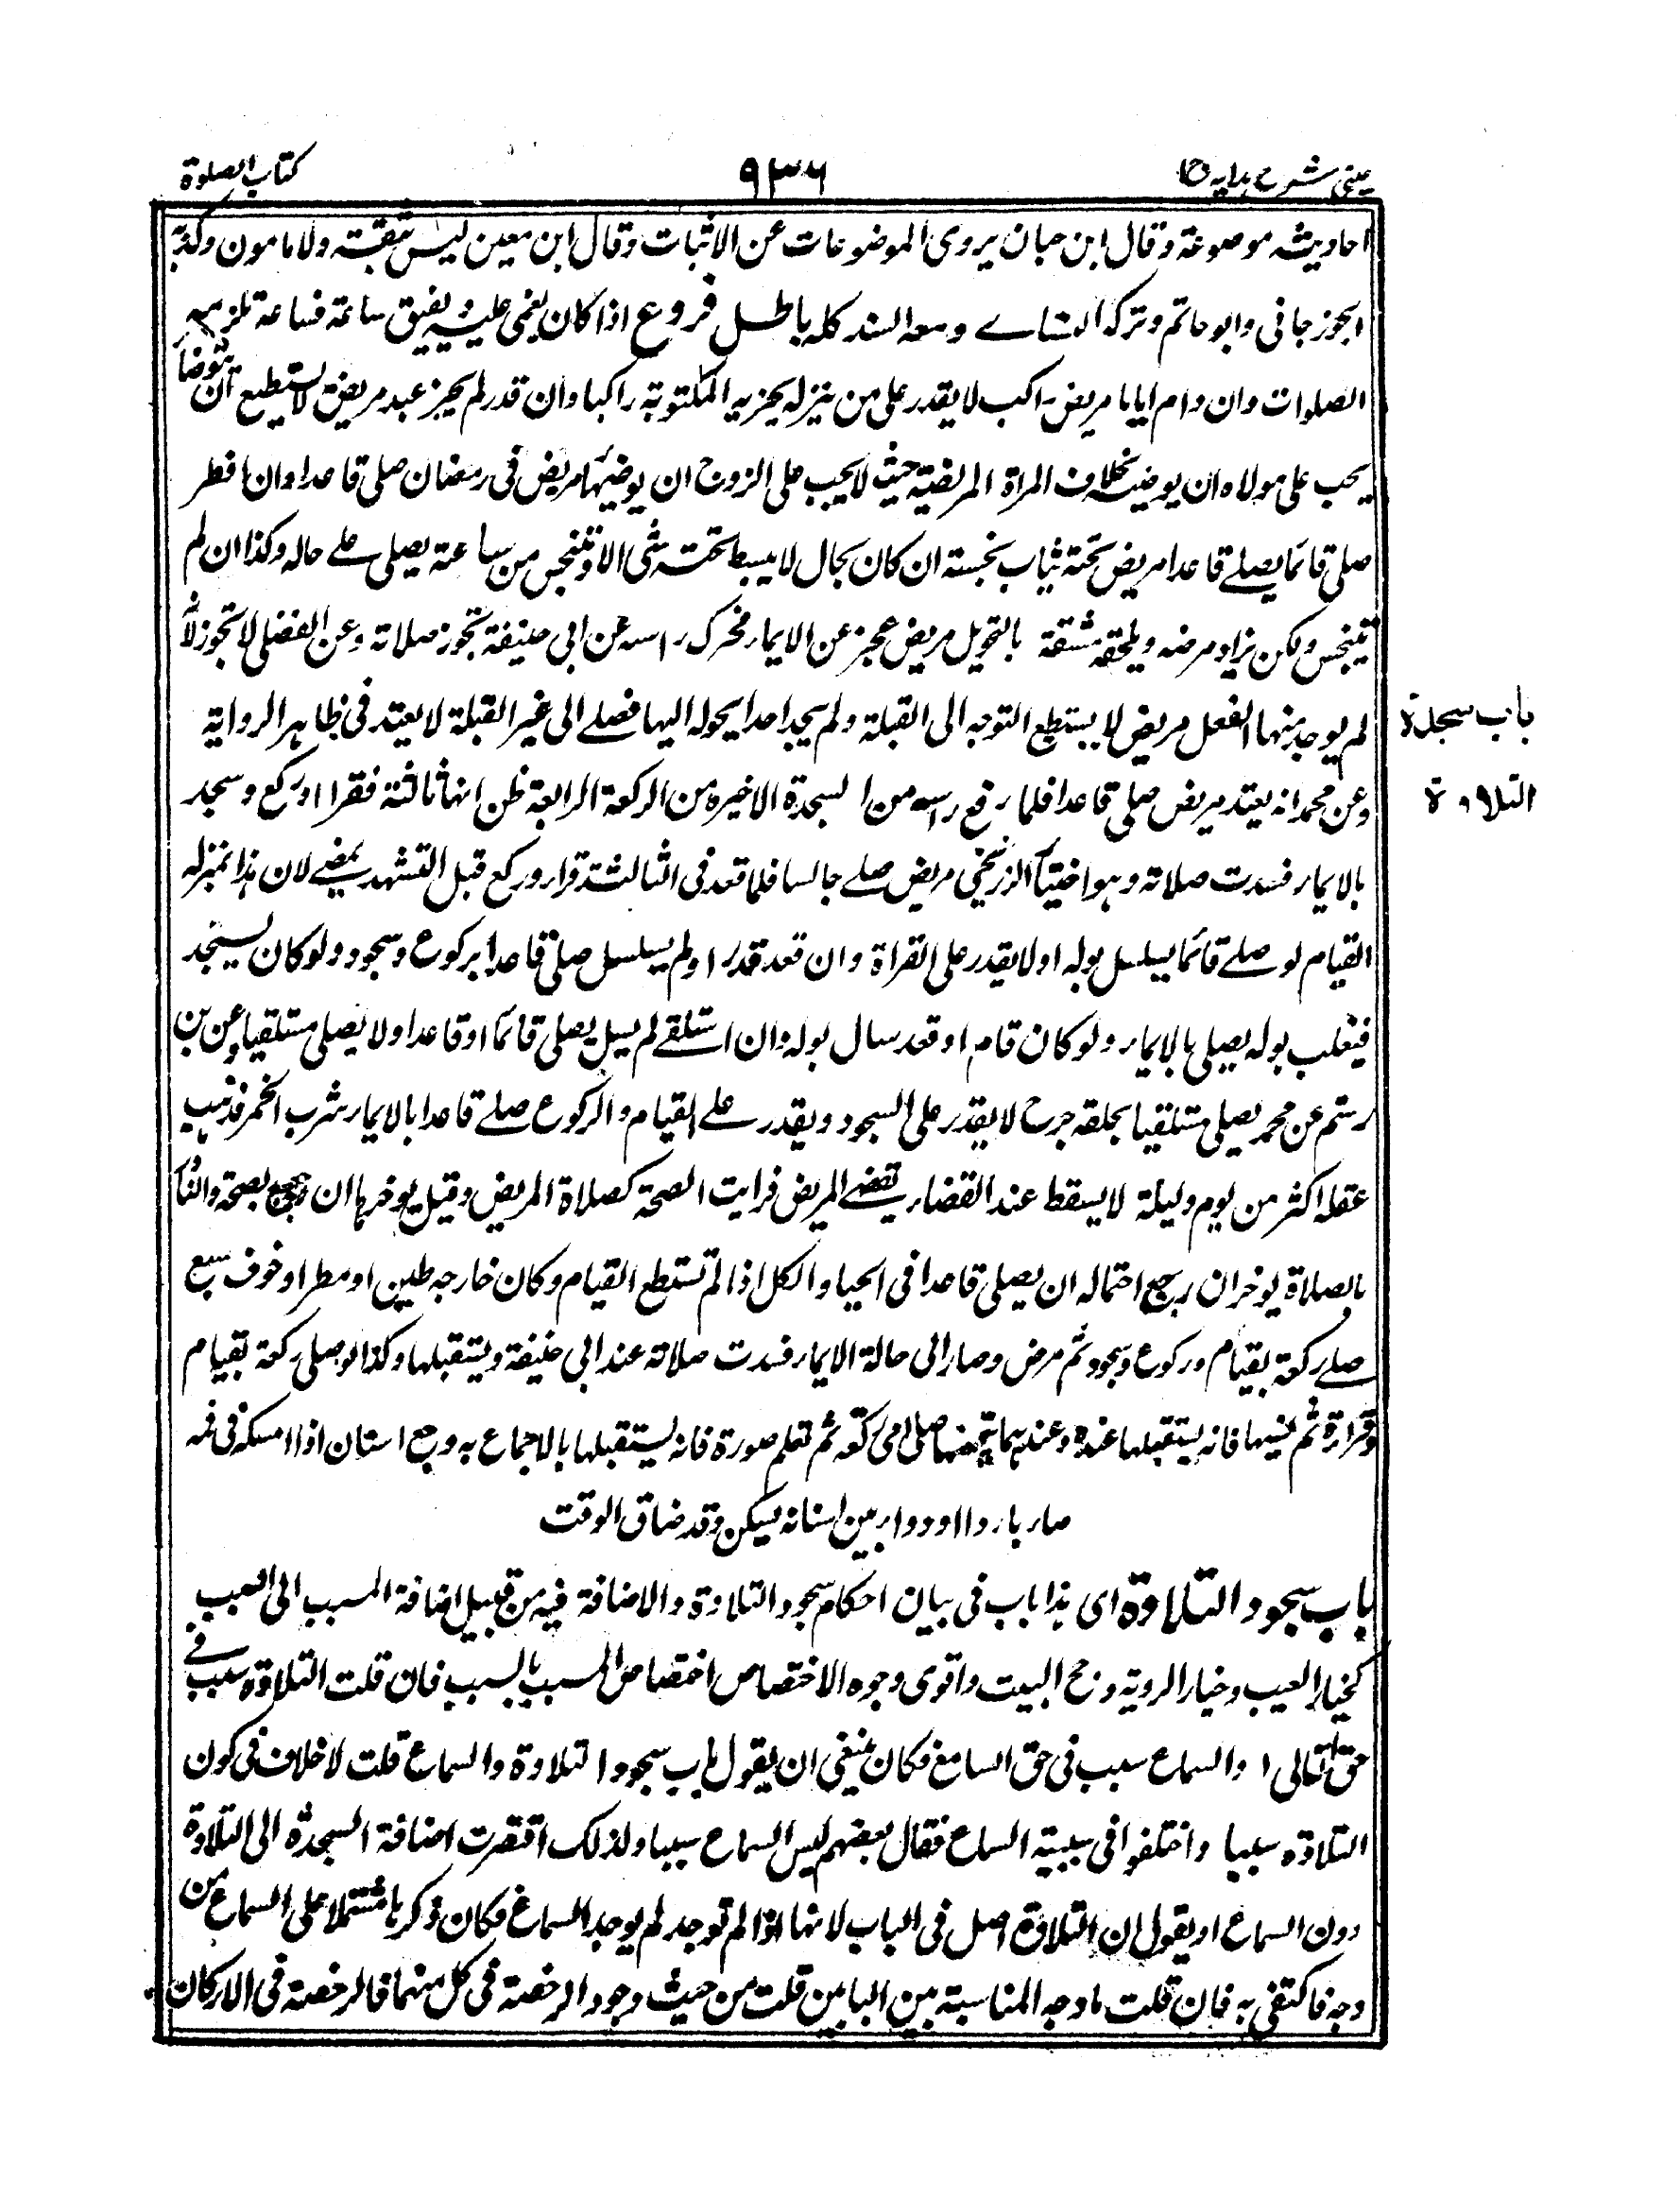 عینی شرح ہدایہ ج۱
۹۳۶
کتاب الصلوۃ
احادیثہ موضوعة وقال ابن حبان یروی الموضوعات عن الاثبات وقال ابن معین لیس بثقة ولا مامون وکذبہ
الجوزجانی وابو حاتم وترکہ النسائے ومعہ السند کلہ باطل فروع اذا کان یغمی علیہ ویفیق ساعة فساعة تلزمہ
الصلوات وان دام ایاما مریض راکب لا یقدر علی من ینزلہ یجزیہ المکتوبة راکبا وان قدر لم یجز عبد مریض لا یستطیع ان یتوضأ
یجب علی مولاہ ان یوضیہ بخلاف المراة المریضیة حیث لا یجب علی الزوج ان یوضیہا مریض فی رمضان صلی قاعدا وان افطر
صلی قائما یصلے قاعدا مریض تحتہ ثیاب نجستہ ان کان بحال لا یبسط تحتہ شی الا وتنجس من ساعتہ یصلی علے حالہ وکذا ان لم
یتنجس ولکن یزاد مرضہ ویلحقہ مشقة بالتحویل مریض عجز عن الایماء فحرک راسہ عن ابی حنیفة تجوز صلاتہ وعن الفضلی لا تجوز لانہ
لم یوجد منہا الفعل مریض لا یستطیع التوجہ الی القبلة ولم یجد احدا یحولہ الیہا فصلے الی غیر القبلة لا یعتد فی ظاہر الروایة
باب سجدة
التلاوة
وعن محمد انہ یعتد مریض صلی قاعدا فلما رفع راسہ من السجدة الاخیرة من الرکعة الرابعة ظن انہا ثالثة فقرا ورکع وسجد
بالایماء فسدت صلاتہ وہو اختیار الزرنجی مریض صلے جالسا فلما قعد فی الثالثة قرا ورکع قبل التشہد یمضے لان ہذا بمنزلہ
القیام لو صلے قائما یسلسل بولہ او لا یقدر علی القراة وان قعد قدر او لم یسلسل صلی قاعدا برکوع وسجود ولو کان یسجد
فیغلب بولہ یصلی بالایماء ولو کان قام او قعد سال بولہ وان استلقے لم یسل یصلی قائما او قاعدا ولا یصلی مستلقیا وعن بن
رستم عن محمد یصلی مستلقیا بحلقہ جرح لا یقدر علی السجود ویقدر علے القیام والرکوع صلے قاعدا بالایماء شرب الخمر فذہب
عقلہ اکثر من یوم ولیلة لا یسقط عند القضاء یقضے المریض فرایت الصحة کصلاة المریض وقیل یوخرہا ان
بالصلاة یوخر ان احتمالہ ان یصلی قاعدا فی او الکل اذا لم تستطع القیام وکان خارجہ طین او مطر او خوف سبع
صلے رکعة بقیام ورکوع وسجود ثم مرض وصار الی حالة الایماء فسدت صلاتہ عند ابی حنیفة ویستقبلہا وکذا لو صلی رکعة بقیام
وقراءة ثم نسیہا فانہ یستقبلہا عندہ وعندہما صلی امی رکعة ثم تعلم صورة فانہ یستقبلہا بالاجماع بہ وجع اسنان اذا امسکہ فی فمہ
ماء باردا او دواء بین اسنانہ یسکن وقد ضاق الوقت
باب سجود التلاوة ای ہذا باب فی بیان احکام سجود التلاوة والاضافة فیہ من قبیل اضافة المسبب الی السبب
کخیار العیب وخیار الرویة وحج البیت واقوی وجوہ الاختصاص اختصاص المسبب بالسبب فان قلت التلاوة سبب فی
حق التالی والسماع سبب فی حق السامع فکان ینبغی ان یقول باب سجود التلاوة والسماع قلت لا خلاف فی کون
التلاوة سببا واختلفوا فی سببیة السماع فقال بعضہم لیس السماع سببا ولذلک اقتصرت اضافة السجدة الی التلاوة
دون السماع او یقول ان التلاوة اصل فی الباب لانہا اذا لم توجد لم یوجد السماع فکان ذکرہا مشتملا علی السماع من
وجہ فاکتفی بہ فان قلت ما وجہ المناسبة بین البابین قلت من حیث وجود الرخصة فی کل منہما فالرخصة فی الارکان